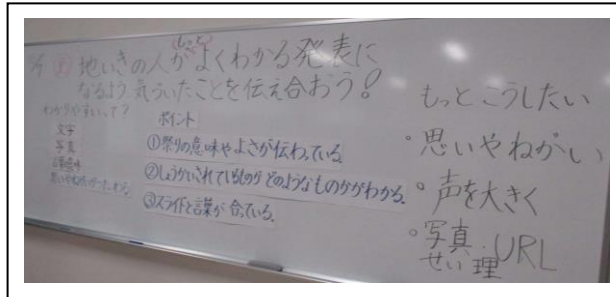 (もっと)
め 地いきの人がよくわかる発表に
なるよう気づいたことを伝え合おう！
わかりやすいって？
文字
写真
言葉
思いやねがいがつたわる
ポイント
①祭りの意味やよさが伝わっている。
②しょうかいされているものがどのようなものかがわかる。
③スライドと言葉が合っている。
もっとこうしたい
・思いやねがい
・声を大きく
・写真・URL
せい理